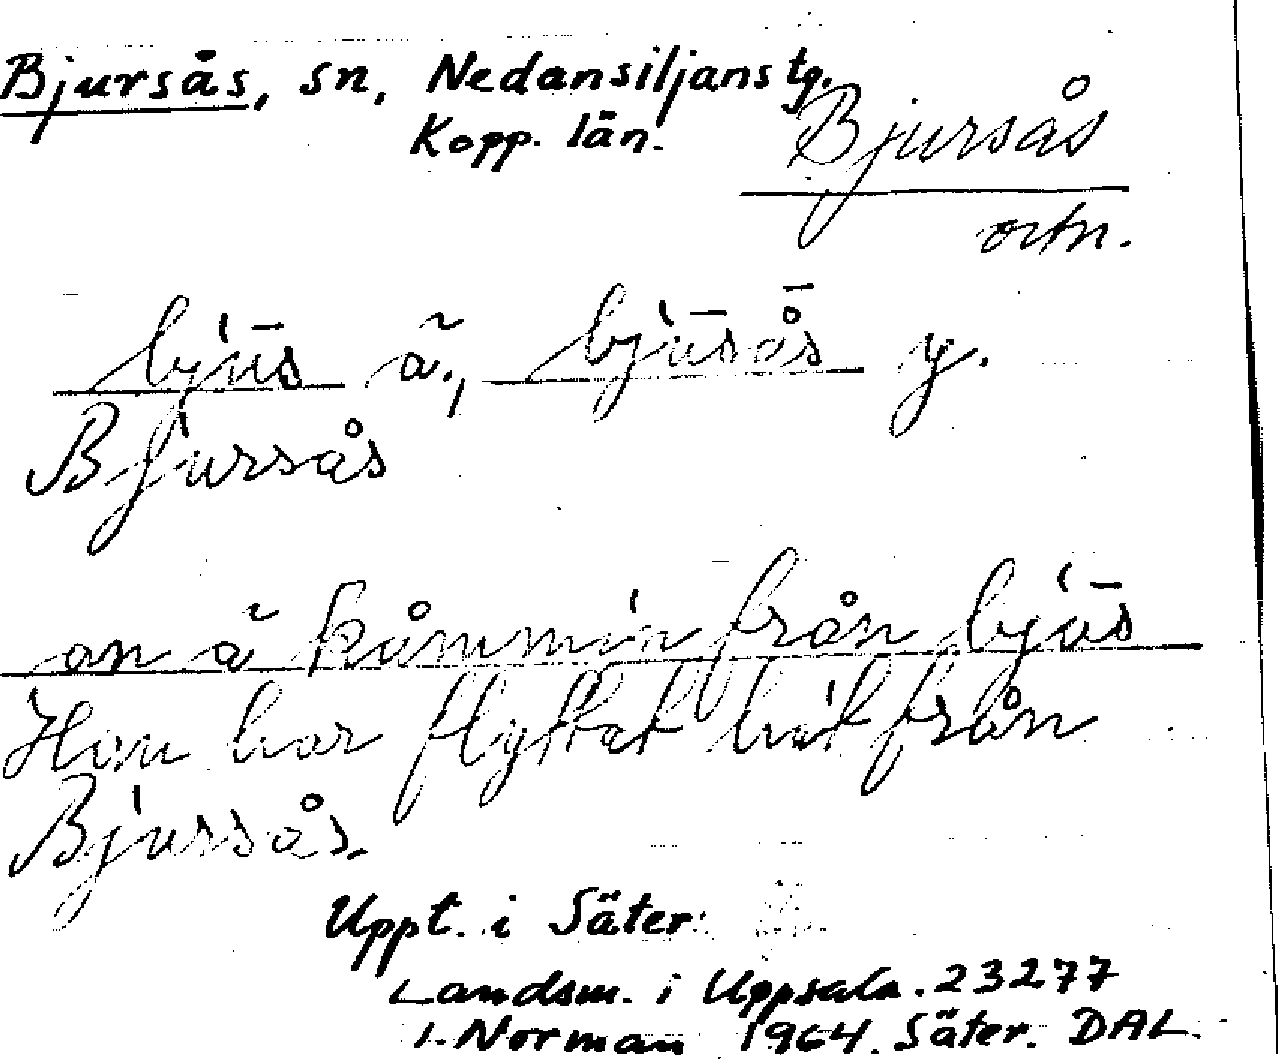 Bjursås, sn, Nedansiljans tg.
Kopp. län.
Bjursås
ortn.
bjūs ã., bjūsås̄ y.
Bjursås
an ã kåmmin från bjūs
Han har flyttat hit från
Bjursås.
Uppt. i Säter
Landsm. i Uppsala. 23277
I. Norman 1964. Säter. DAL.